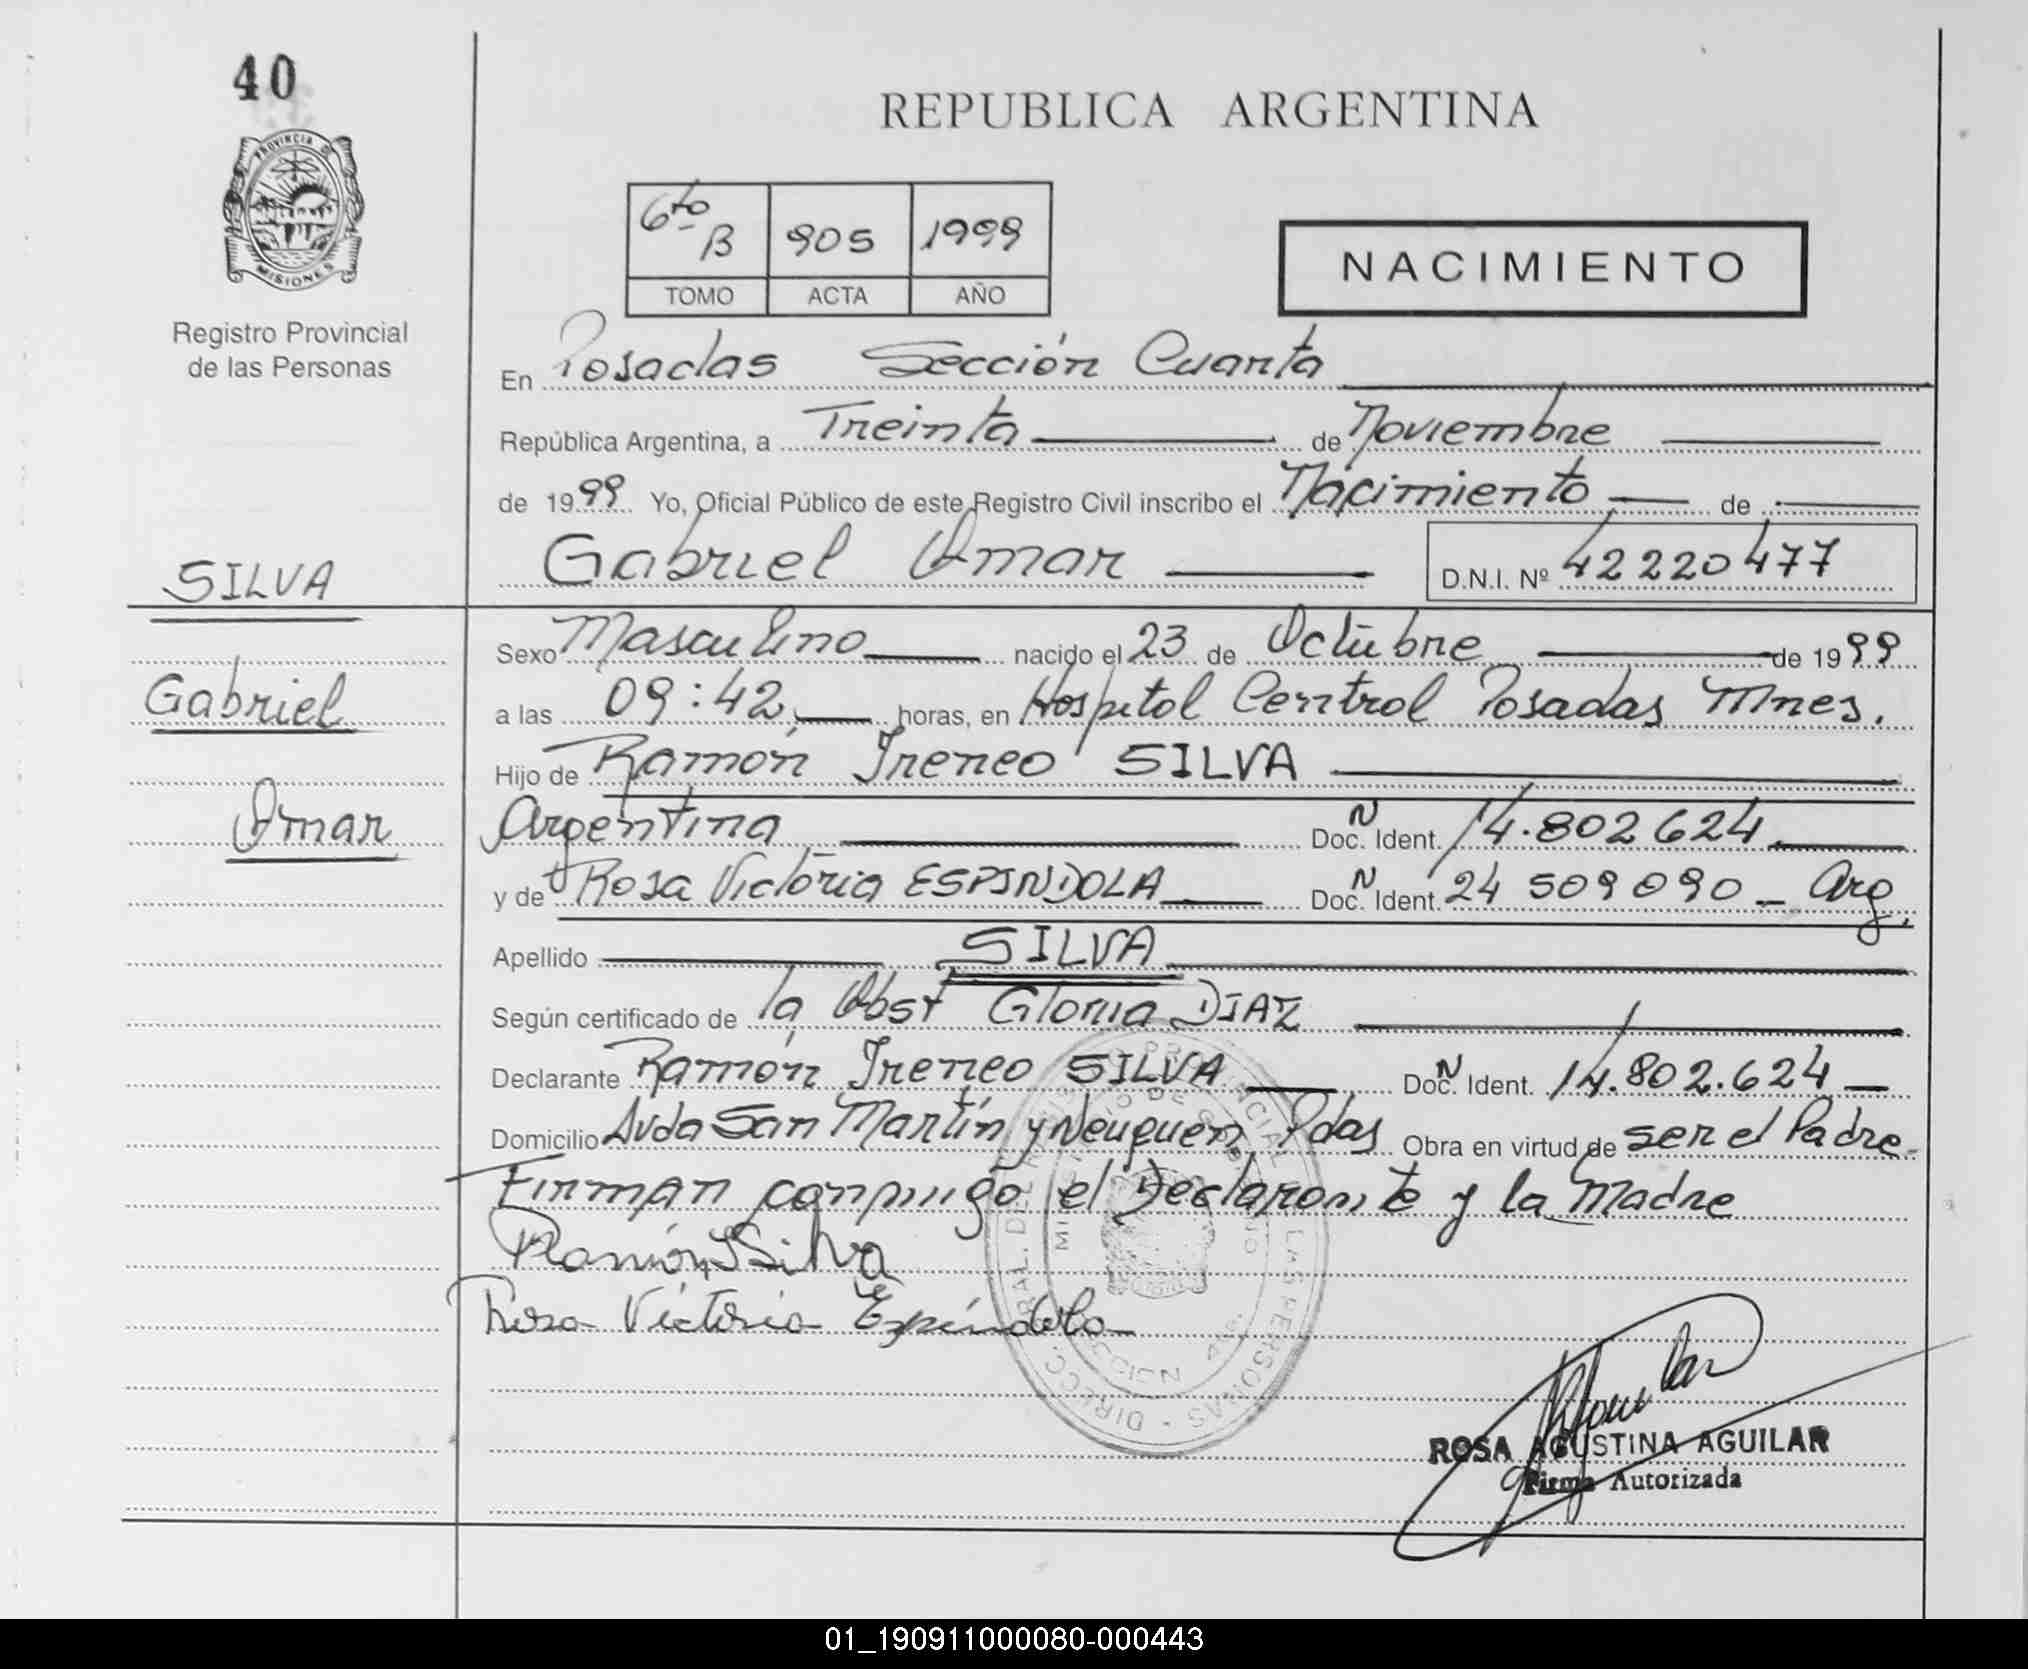 40
REPUBLICA ARGENTINA
PROVINCIA DE
MISIONES
Registro Provincial
de las Personas
6to B 905 1999
TOMO ACTA AÑO
NACIMIENTO
En Posadas Sección Cuarta
República Argentina, a Treinta de Noviembre
de 1999 Yo, Oficial Público de este Registro Civil inscribo el Nacimiento de
Gabriel Omar D.N.I. Nº 42220477
SILVA
Gabriel
Omar
Sexo Masculino nacido el 23 de Octubre de 1999
a las 09:42 horas, en Hospital Central Posadas Mnes.
Hijo de Ramón Ireneo SILVA
Argentina Doc. N Ident. 14.802624
y de Rosa Victoria ESPINDOLA Doc. N Ident. 24 509090 - Arg.
Apellido SILVA
Según certificado de la Obst Gloria DIAZ
Declarante Ramón Ireneo SILVA Doc. N Ident. 14.802.624
Domicilio Avda San Martín y Neuquén Pdas Obra en virtud de ser el Padre.
Firman conmigo el Declarante y la Madre
Ramón I Silva
Rosa Victoria Espíndola
DIRECC. GRAL. DEL REGISTRO PROVINCIAL DE LAS PERSONAS
MINISTERIO DE GOBIERNO
SECCION 4ta
Aguilar
ROSA AGUSTINA AGUILAR
Firma Autorizada
01_190911000080-000443